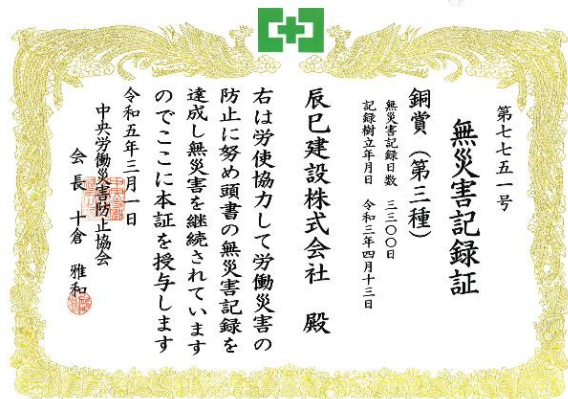 第七七五一号
無災害記録証
銅賞(第三種)
無災害記録日数 三三〇〇日
記録樹立年月日 令和三年四月十三日
辰巳建設株式会社 殿
右は労使協力して労働災害の
防止に努め頭書の無災害記録を
達成し無災害を継続されています
のでここに本証を授与します
令和五年三月一日
中央労働災害防止協会
会長 十倉 雅和